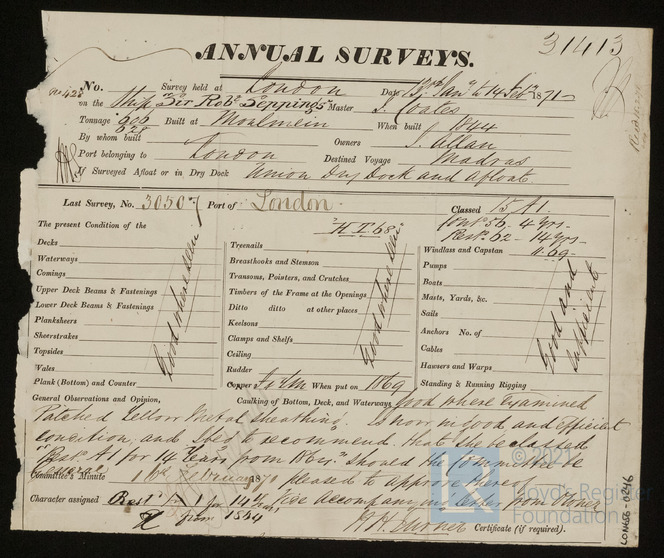 ANNUAL SURVEYS.
31413
No. 428 Survey held at London Date 13th Jany to 14 Feby 1871
on the Ship Sir Robt Seppings Master J. Coates
Tonnage 606 Built at Moulmein When built 1844
628
By whom built Owners J. Allan
Port belonging to London Destined Voyage Madras
If Surveyed Afloat or in Dry Dock Union Dry Dock and afloat
Last Survey, No. 30507 Port of London Classed 15 A1
Contd 56 - 4 yrs
Restd 62 - 14 yrs
The present Condition of the
Decks
Waterways
Comings
Upper Deck Beams & Fastenings
Lower Deck Beams & Fastenings
Planksheers
Sheerstrakes
Topsides
Wales
Plank (Bottom) and Counter
Good where seen
"H T 68"
Treenails
Breasthooks and Stemson
Transoms, Pointers, and Crutches
Timbers of the Frame at the Openings
Ditto ditto at other places
Keelsons
Clamps and Shelfs
Ceiling
Rudder
Copper When put on 1869
Good where seen
Windlass and Capstan
Pumps
Boats
Masts, Yards, &c.
Sails
Anchors No. of
Cables
Hawsers and Warps
Standing & Running Rigging
Good and sufficient
General Observations and Opinion, Caulking of Bottom, Deck, and Waterways Good where Examined
Patched Yellow Metal Sheathing. Is now in good and efficient
condition, and I beg to recommend that she be classed
A1 for 14 Years from should the Committee be
Committee's Minute February 1871 pleased to approve thereof
Character assigned A1 for 14 yrs accompanying letter from Owner
from 1864
Certificate (if required).
© 2021
Lloyd's Register
Foundation
LON666-0246